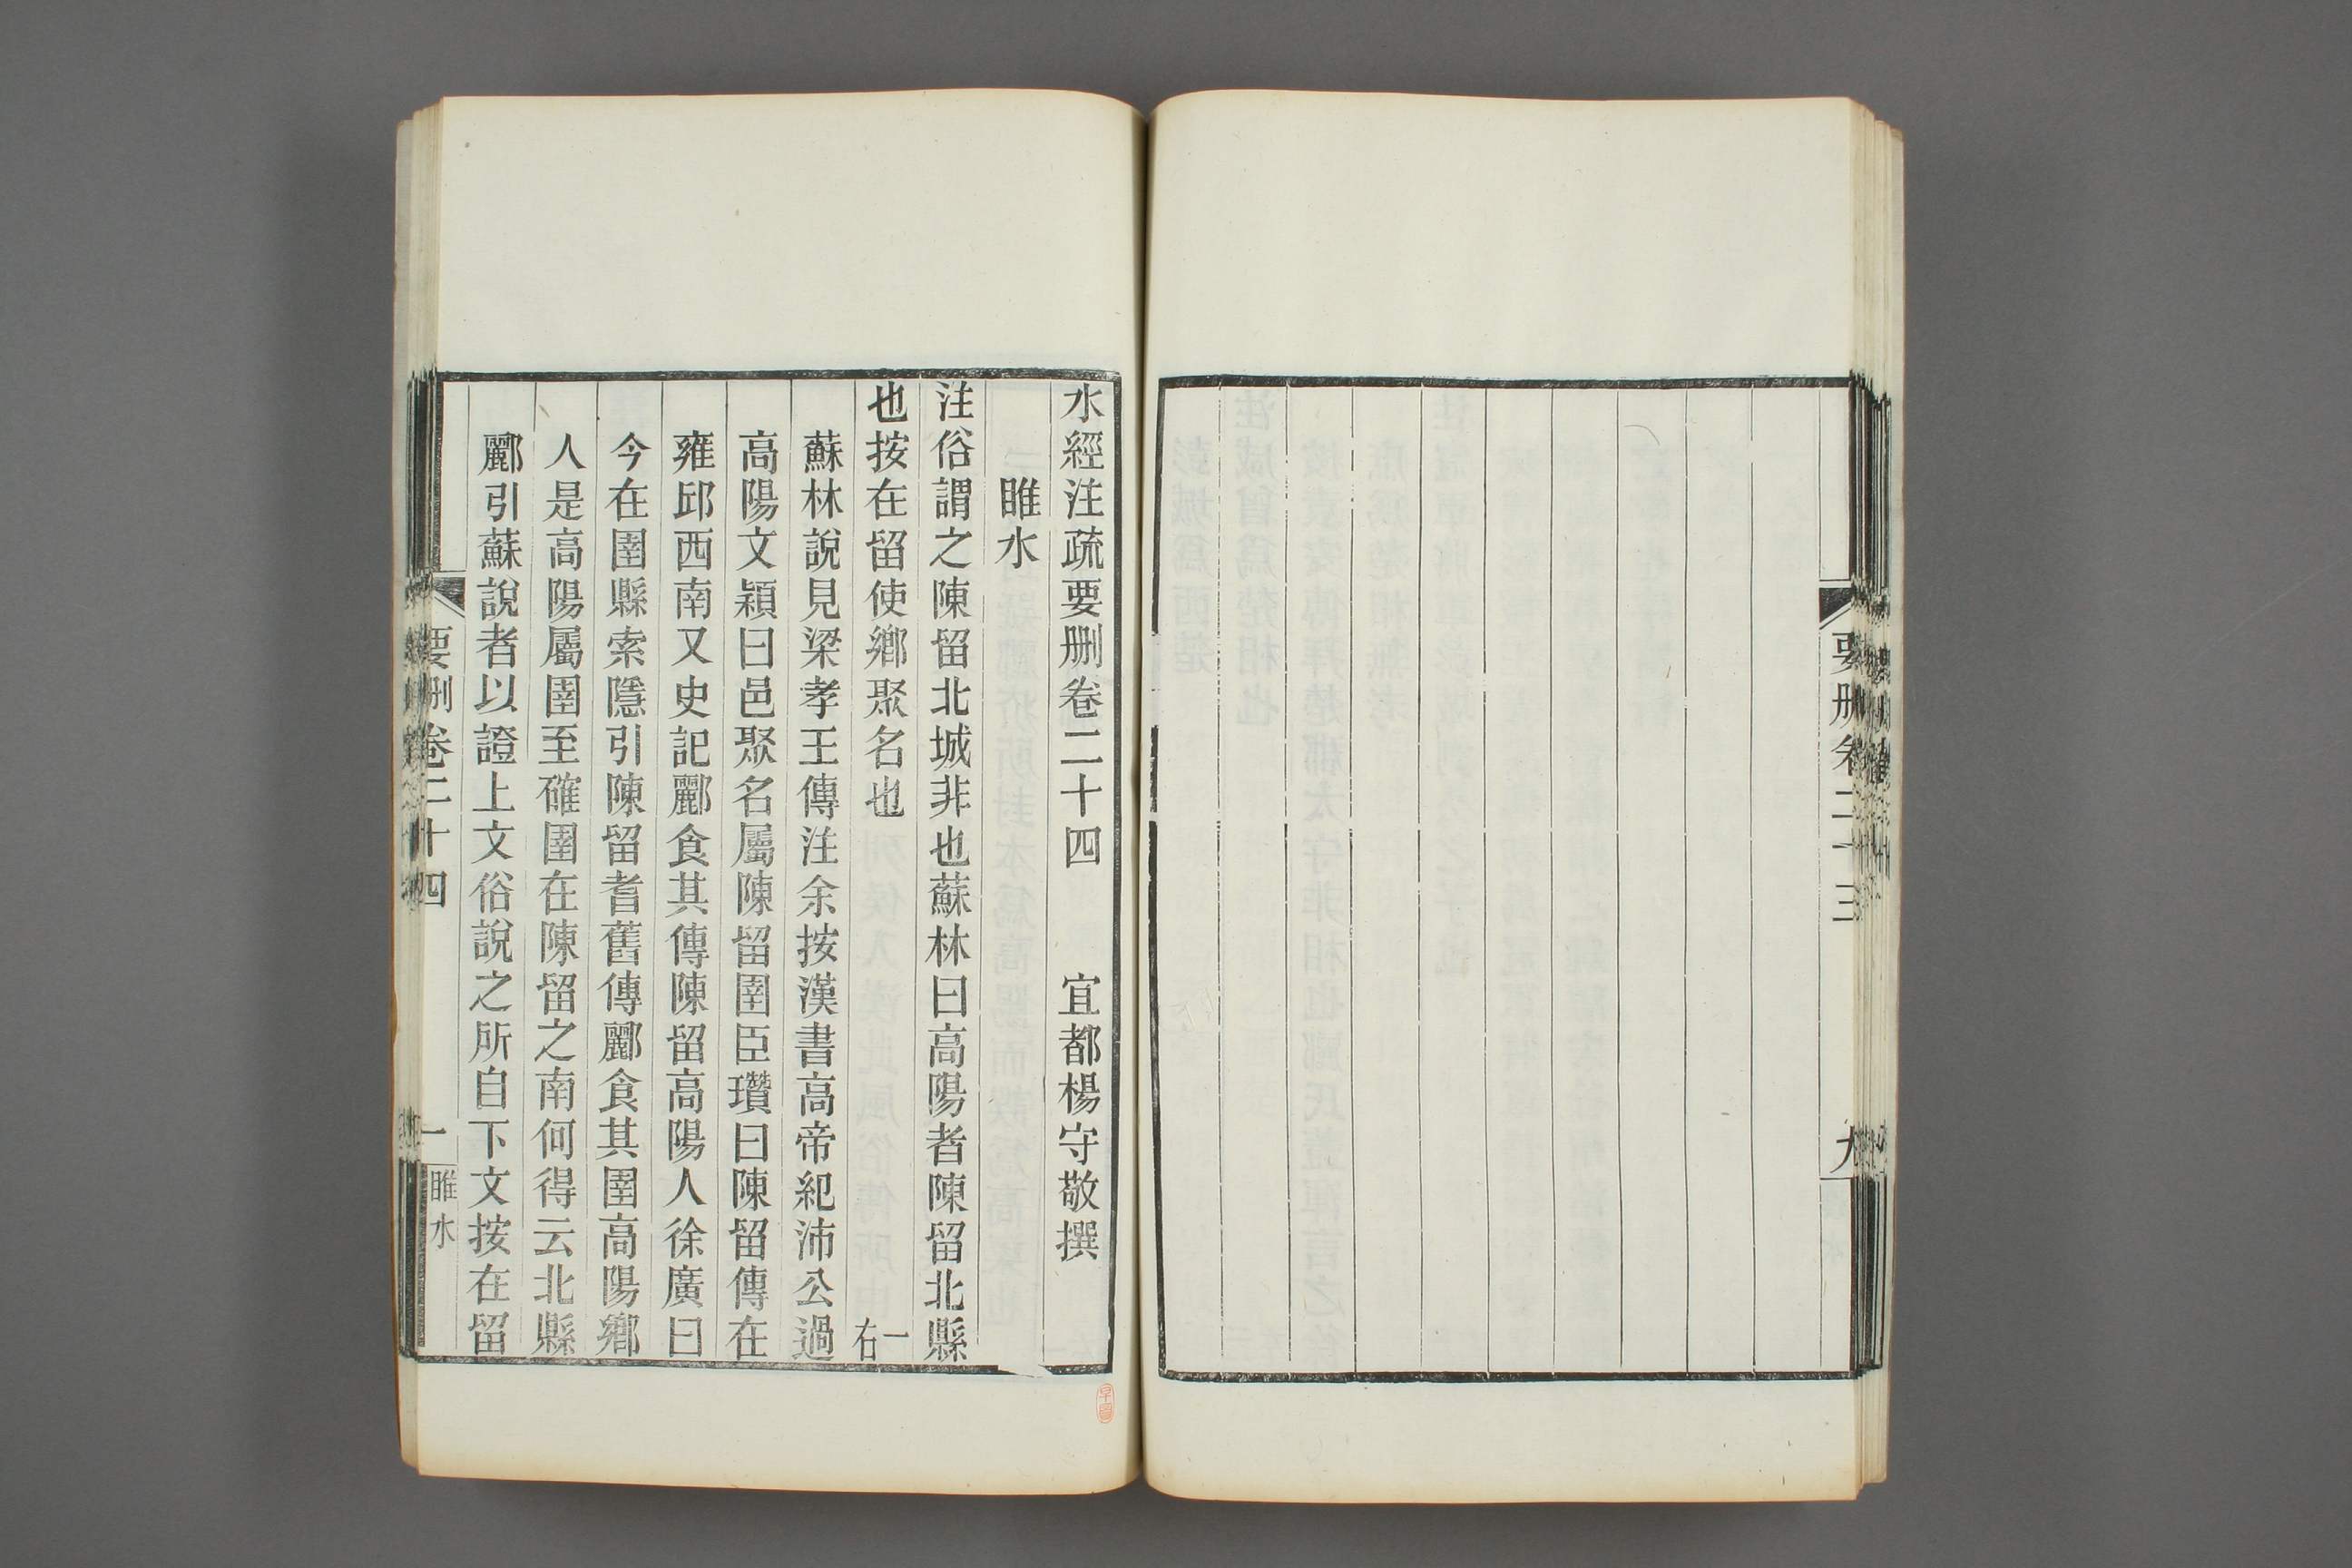 要刪卷二十三
九
水經注疏要刪卷二十四 宜都楊守敬撰
睢水
注俗謂之陳留北城非也蘇林曰高陽者陳留北縣
也按在留使鄉聚名也 一右
蘇林說見梁孝王傳注余按漢書高帝紀沛公過
高陽文穎曰邑聚名屬陳留圉臣瓚曰陳留傳在
雍邱西南又史記酈食其傳陳留高陽人徐廣曰
今在圉縣索隱引陳留耆舊傳酈食其圉高陽鄉
人是高陽屬圉至確圉在陳留之南何得云北縣
酈引蘇說者以證上文俗說之所自下文按在留
要刪卷二十四
一
睢水